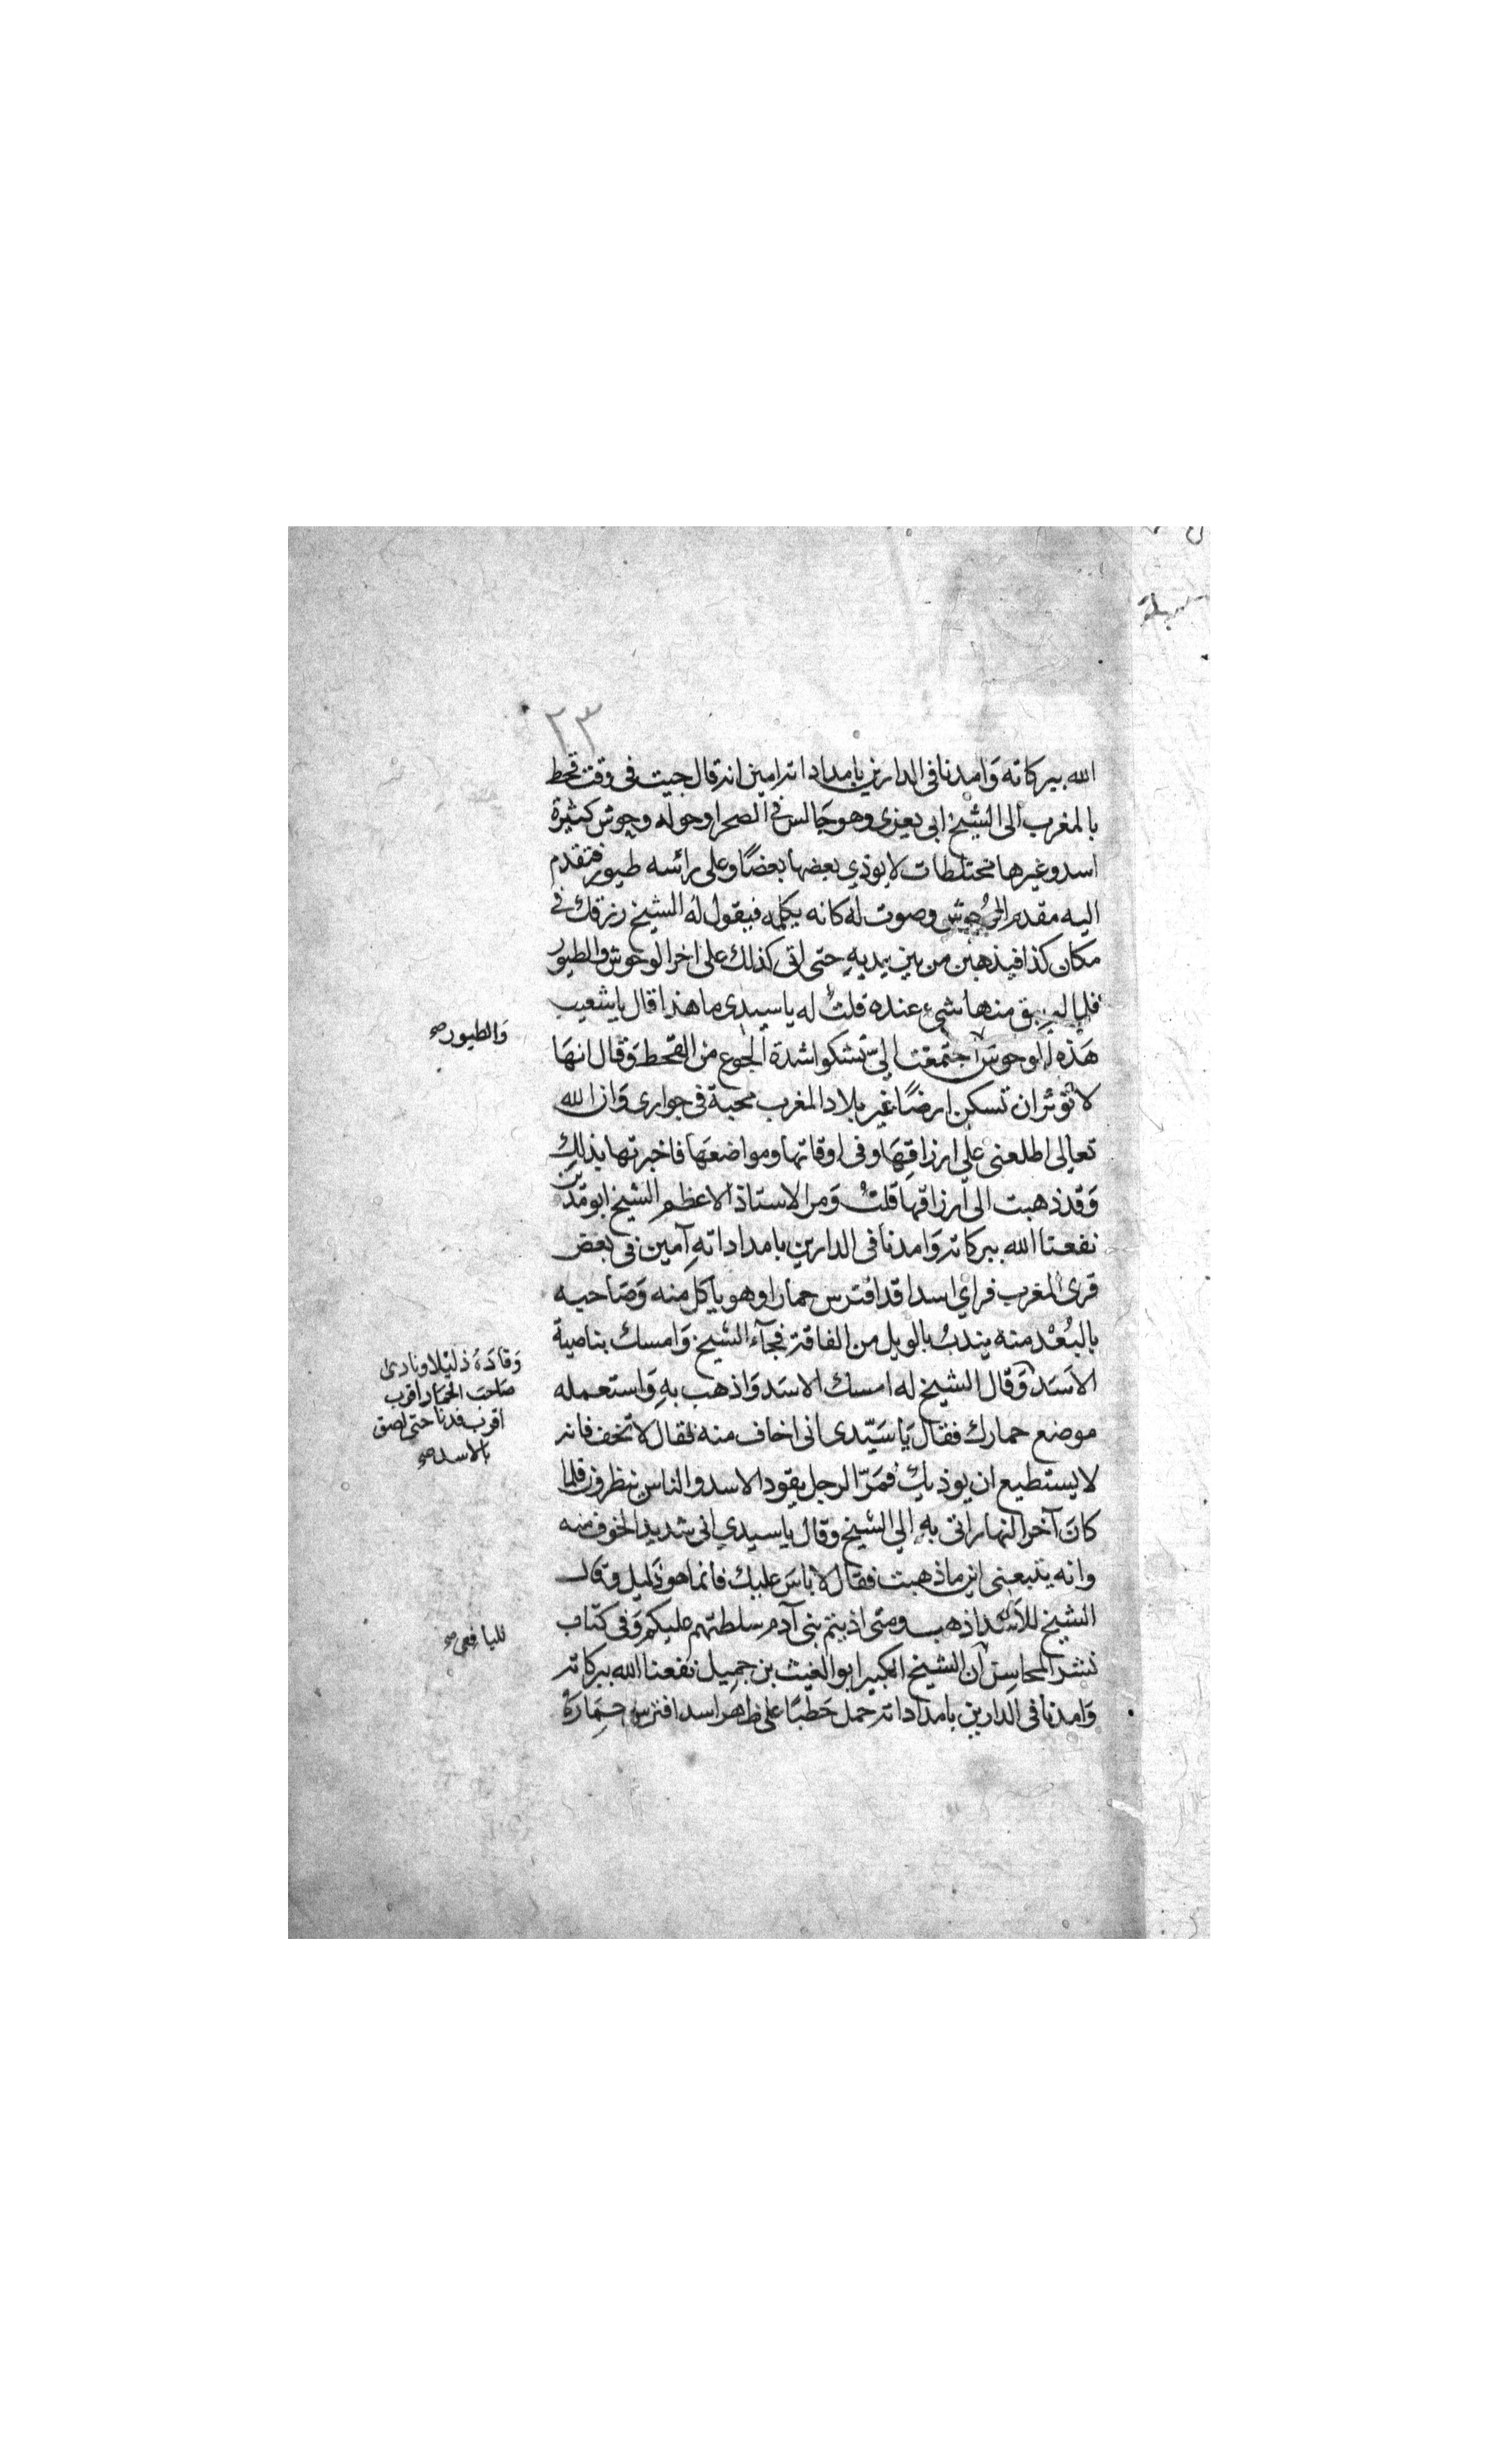 ٢٣
الله ببركاته وَامدنا فى الدارين بامداداته امين انه قال جيت فى وقت قحط
بالمغرب الى الشيخ ابى يعزى وهو جَالس فى الصحرا وحوله وحوش كثيرة
اسد وغيرها مختلطات لا يوذي بعضها بعضًا وعلى رائسه طيور فتقدم
اليه مقدم الوُحوش وصوت له كانه يكلمه فيقول لهُ الشيخ رزقك فى
مكان كذا فيذهبن من بين يديهِ حتى اتى كذلك على اخر الوحوش والطيور
فلما لم يبق منها شيء عنده قلتُ له يا سيدى ما هذا قال يا شعيب
هَذه الوحوش اجتمعَت اليّ تشكوا شدة الجوع من القحط وَقال انهَا
لا تؤثر ان تسكن ارضًا غير بلاد المغرب محبة فى جوارى وَان الله
تعالى اطلعنى على ارزاقِهَا وفى اوقاتها ومواضعَها فاخبرتها بذلك
وَقد ذهبت الى ارزاقهَا قلتُ وَمر الاستاذ الاعظم الشيخ ابو مَدين
نفعنا الله ببركاته وَامدنا فى الدارين بامداداتهِ آمين فى بعض
قرى المغرب فراي اسدا قد افترس حمارا وهو ياكل منه وَصَاحبه
بالبُعْد منه يندبُ بالويل من الفاقة فجآء الشيخ وَامسك بناصية
الاسَد وَقال الشيخ له امسك الاسَد وَاذهب بهِ وَاستعمله
موضع حمارك فقال يَا سَيّدى انى اخاف منه فقال لا تخف فانه
لا يستطيع ان يوذيكَ فمَرّ الرجل يقود الاسد والناس ينظرون فلما
كانَ آخر النهار اتى بهِ الي الشيخ وقال يا سيدي انى شديد الخوف منه
وانه يتبعنى اين ما ذهبت فقال لا باسَ عليك فانما هو ذَليل وقال
الشيخ للاسَد اذهب ومتى اذيتم بنى آدم سلطتهم عليكم وَفى كتاب
نشر المحاسِن ان الشيخ الكبير ابو الغيث بن جميل نفعنا الله ببركاته
وَامدنا فى الدارين بامداداته حمل حَطبًا على ظهر اسد افترس حِمَارَهُ
وَالطيور صح
وَقادَهُ ذليْلا ونادى
صَاحبَ الحمَار اقرب
اقرب فدنا حتى لصق
بالاسد صح
لليافعى صح